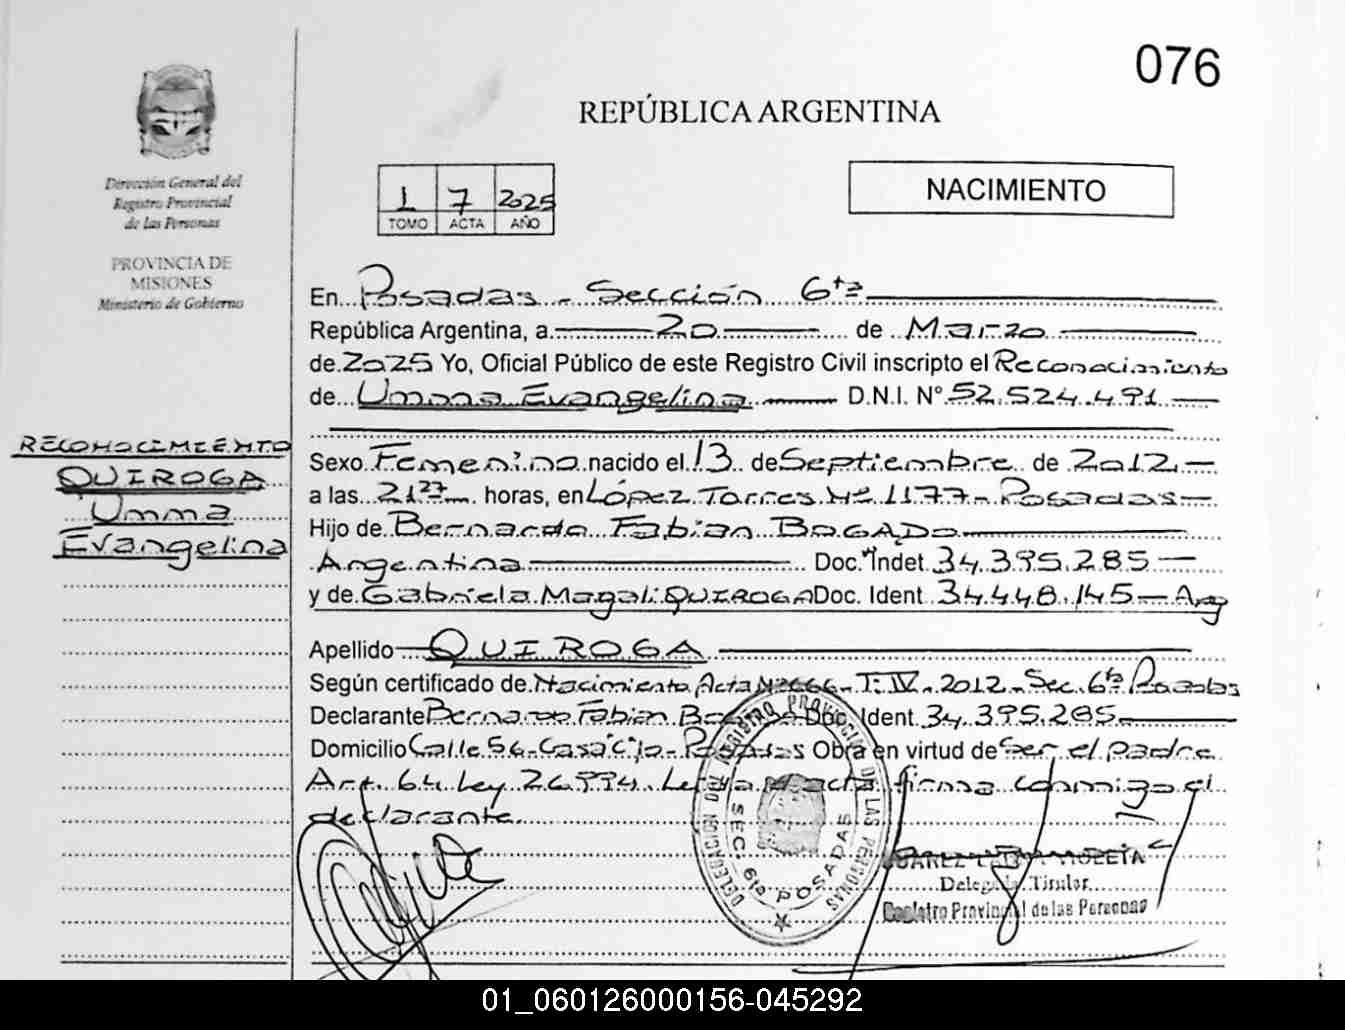 076
REPÚBLICA ARGENTINA
Dirección General del
Registro Provincial
de las Personas
PROVINCIA DE
MISIONES
Ministerio de Gobierno
1 7 2025
TOMO ACTA AÑO
NACIMIENTO
En Posadas - Sección 6ta
República Argentina, a 20 de Marzo
de 2025 Yo, Oficial Público de este Registro Civil inscripto el Reconocimiento
de Umma Evangelina D.N.I. Nº 52.524.491
RECONOCIMIENTO
QUIROGA
Umma
Evangelina
Sexo Femenino nacido el 13 de Septiembre de 2012
a las 21 27 horas, en López Torres Nº 1177 - Posadas
Hijo de Bernardo Fabian BOGADO
Argentina Doc. Indet 34.395.285
y de Gabriela Magali QUIROGA Doc. Ident 34.448.145 - Arg
Apellido QUIROGA
Según certificado de Nacimiento Acta Nº 666 - T. IV - 2012 - Sec. 6ta Posadas
Declarante Bernardo Fabian Doc. Ident. 34.395.285
Domicilio Calle 56 - Casa - Posadas Obra en virtud de Ser el padre
Art. 64 Ley 26.994. firma conmigo el
declarante.
DELEGACION DEL REGISTRO PROVINCIAL DE LAS PERSONAS
SEC. 6ta POSADAS
Delegada Titular
Registro Provincial de las Personas
01_060126000156-045292